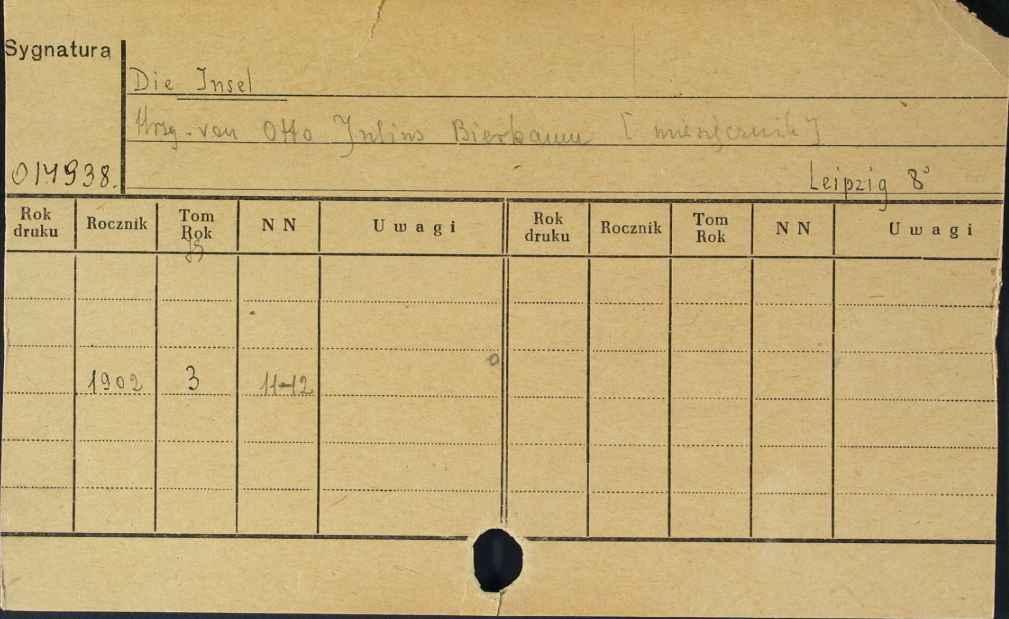 Sygnatura
Die Insel
Hrsg. von Otto Julius Bierbaum [miesięcznik]
014938.
Leipzig 8°
Rok druku Rocznik Tom Rok N N Uwagi Rok druku Rocznik Tom Rok N N Uwagi
Jg
1902 3 11-12